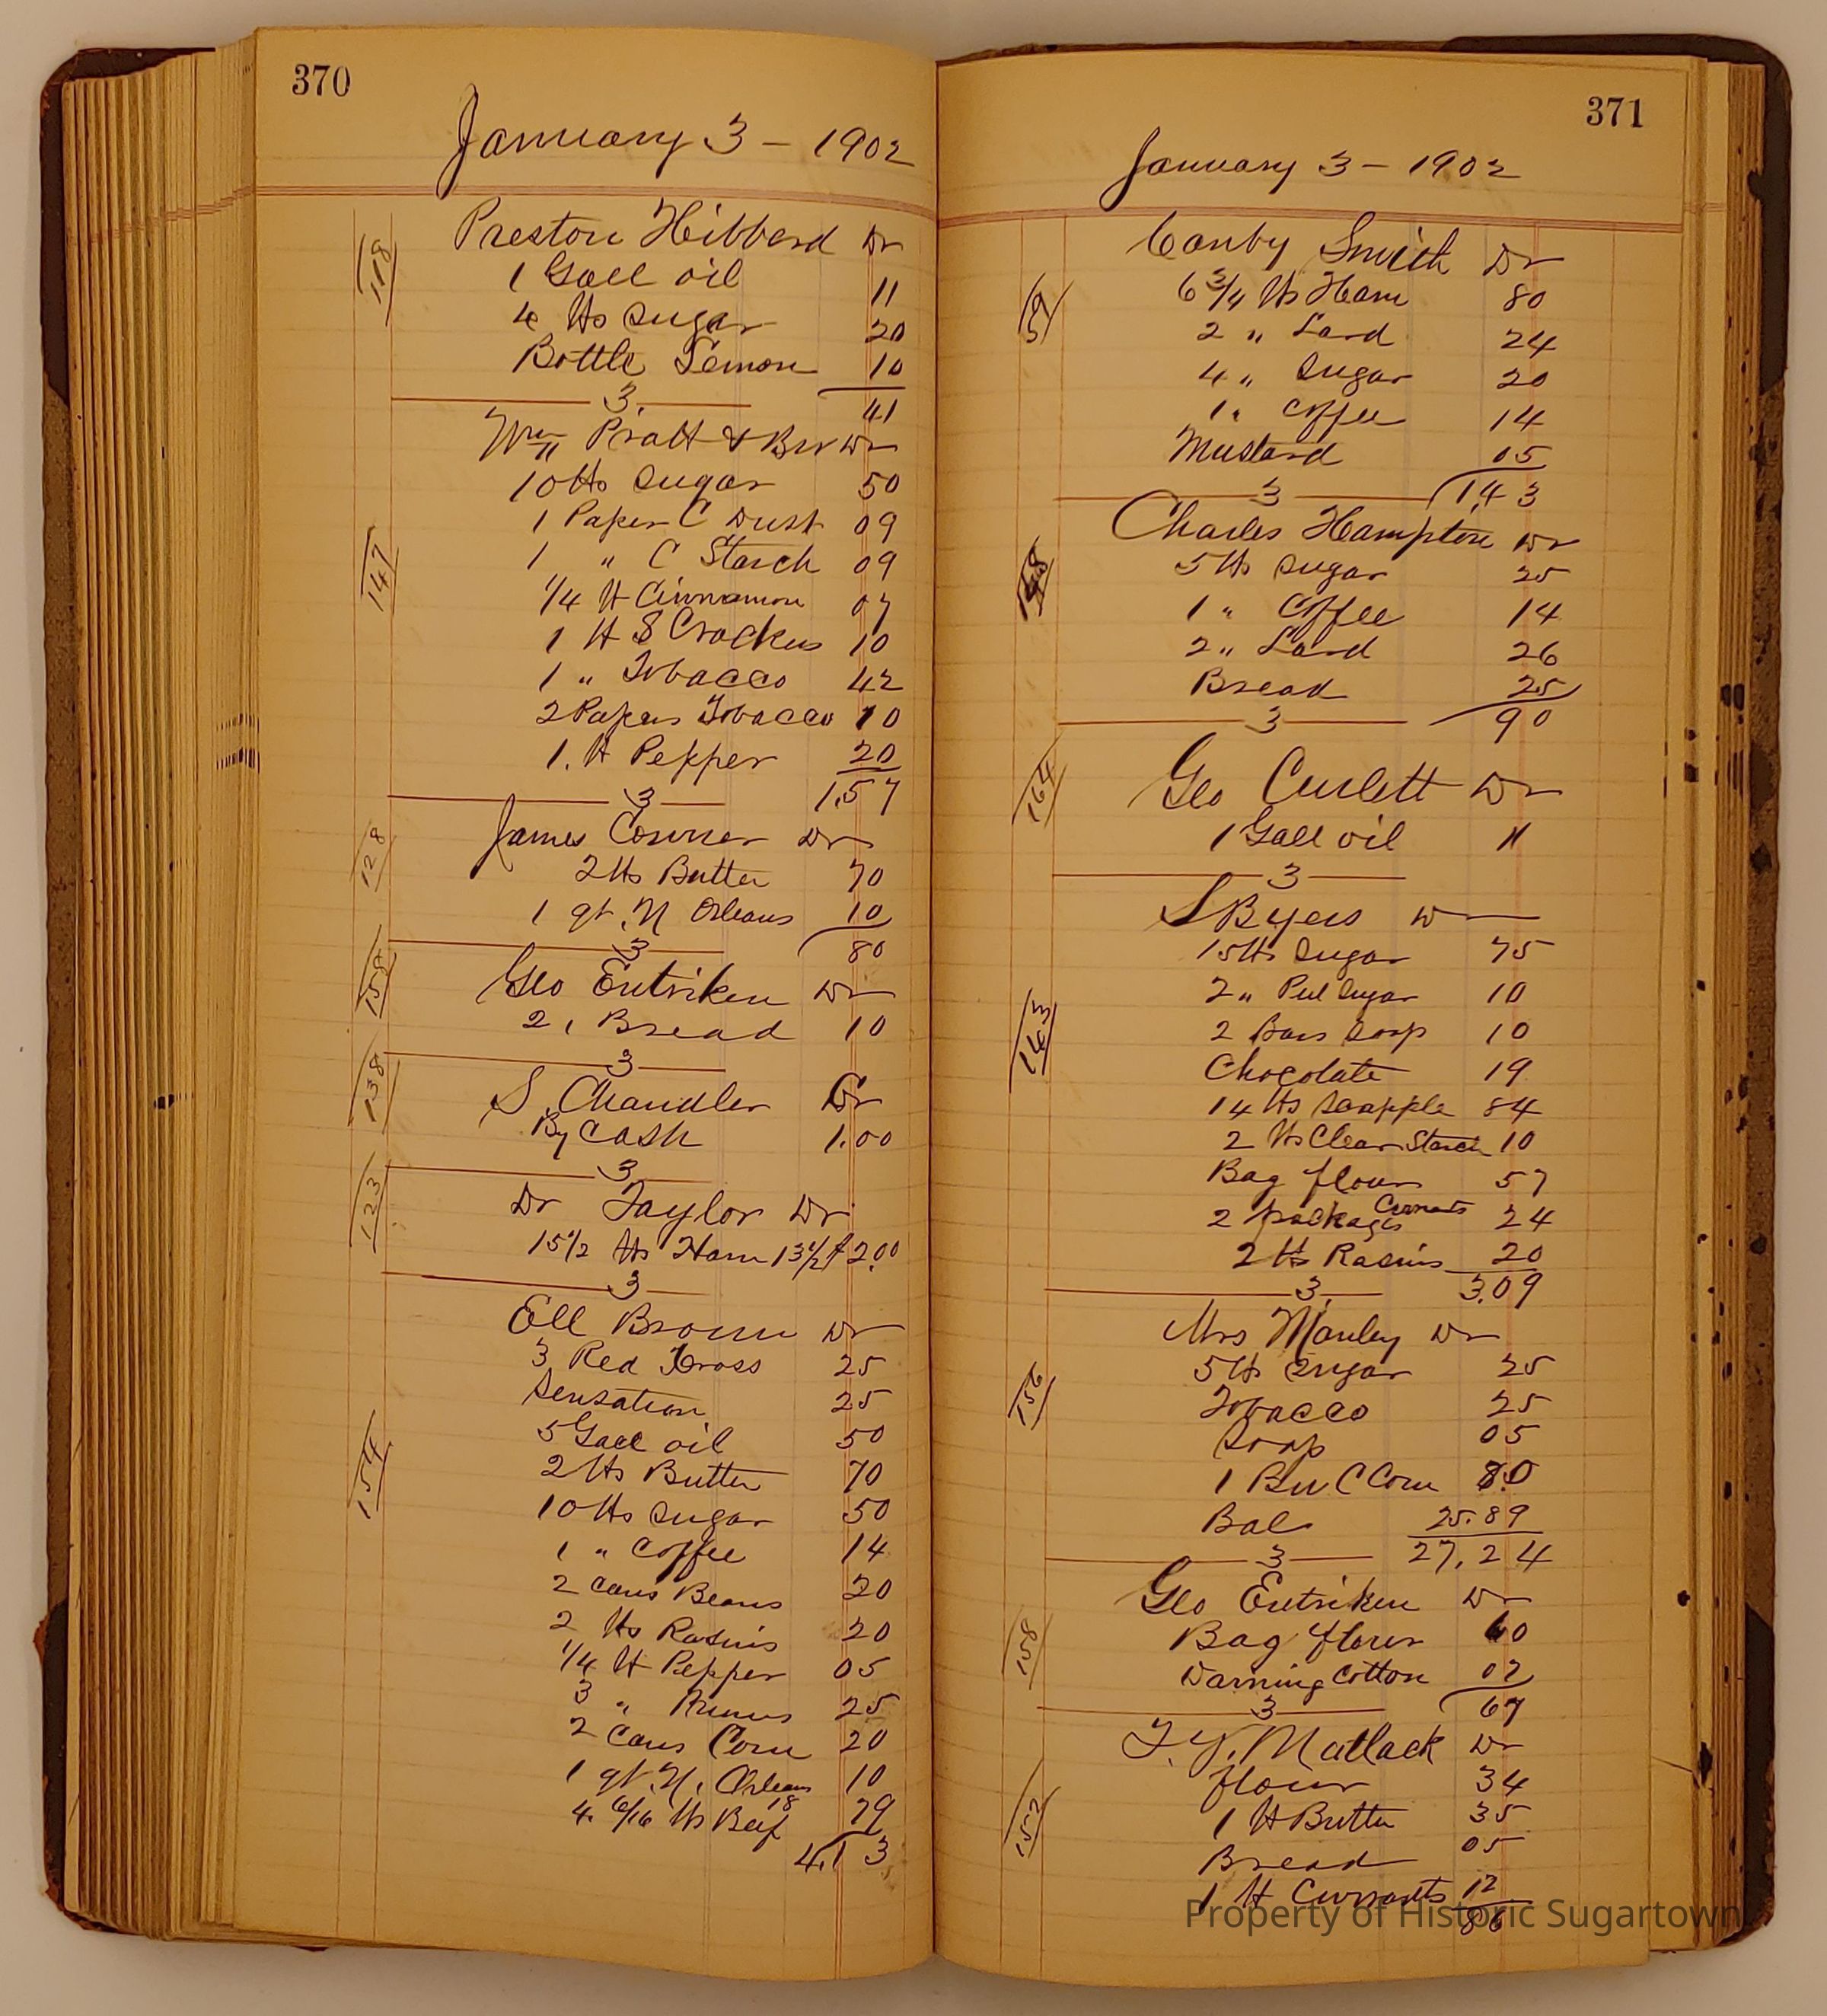 370
January 3 - 1902
118
Preston Hibberd Dr
1 Gall oil 11
4 lbs Sugar 20
Bottle Lemon 10
3. 41
Wm Pratt & Bro Dr
147
10 lbs Sugar 50
1 Paper C Dust 09
1 " C Starch 09
1/4 lb Cinnamon 07
1 lb S Crackers 10
1 " Tobacco 42
2 Papers Tobacco 10
1. lb Pepper 20
3 1.57
128
James Conner Dr
2 lbs Butter 70
1 qt. N Orleans 10
3 80
158
Geo Entriken Dr
2, Bread 10
3
138
S. Chandler Cr
By Cash 1.00
3
123
Dr Taylor Dr
15 1/2 lbs Ham 13 1/2 2.00
3
Ell Brown Dr
154
3 Red Cross 25
Sensation 25
5 Gall oil 50
2 lbs Butter 70
10 lbs Sugar 50
1 " Coffee 14
2 Cans Beans 20
2 lbs Rasins 20
1/4 lb Pepper 05
3 " Prunes 25
2 Cans Corn 20
1 qt. N. Orleans 10
4. 6/16 lbs Beef 18 79
4.13
371
January 3 - 1902
Canby Smith Dr
59
6 3/4 lbs Ham 80
2 " Lard 24
4 " Sugar 20
1 " Coffee 14
Mustard 05
3 1.43
Charles Hampton Dr
5 lbs Sugar 25
1 " Coffee 14
2 " Lard 26
Bread 25
3 90
164
Geo Curlett Dr
1 Gall oil 11
3
S Byers Dr
163
15 lbs Sugar 75
2 " Pul Sugar 10
2 Bars Soap 10
Chocolate 19
14 lbs Scrapple 84
2 lbs Clear Starch 10
Bag flour 57
2 packages Currants 24
2 lbs Rasins 20
3. 3.09
Mrs Manley Dr
156
5 lbs Sugar 25
Tobacco 25
Soap 05
1 Bu C Corn 80
Bal 25.89
3 27.24
Geo Entriken Dr
158
Bag flour 60
Darning Cotton 07
3 67
Matlack Dr
152
flour 34
1 lb Butter 35
Bread 05
1 lb Currants 12
86
Property of Historic Sugartown